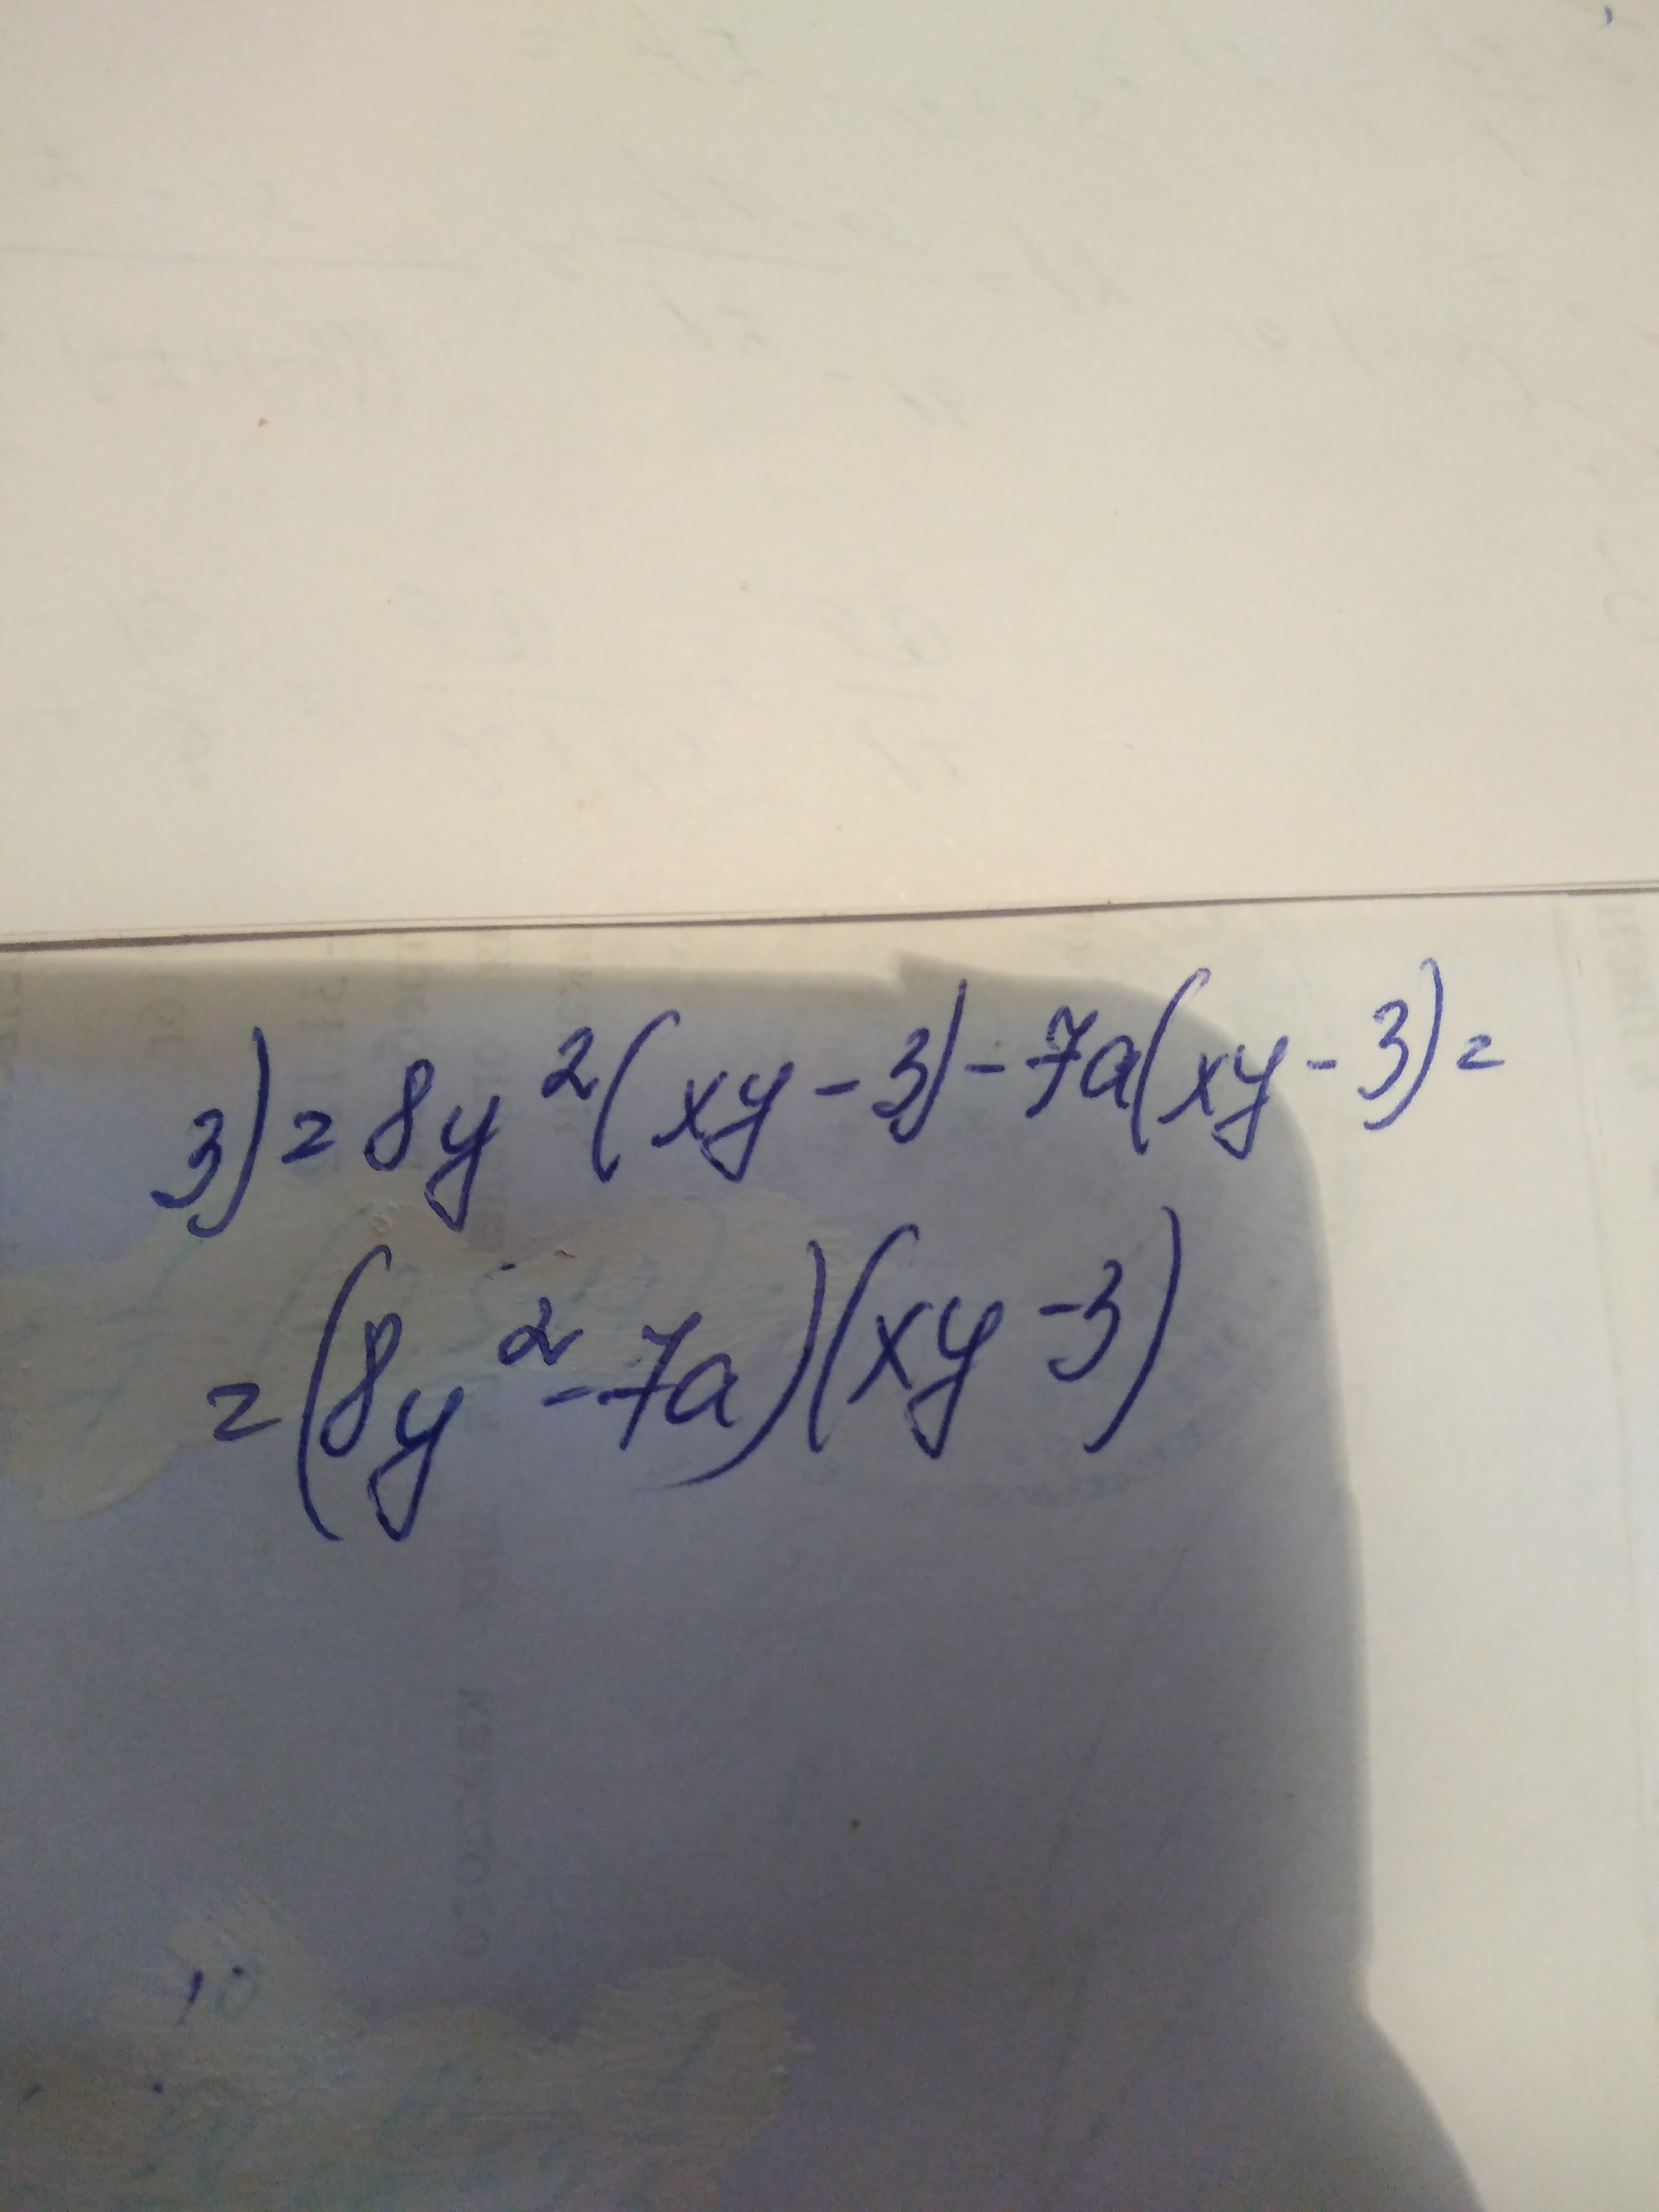 3) = 8y²(xy - 3) - 7a(xy - 3) =
= (8y² - 7a)(xy - 3)